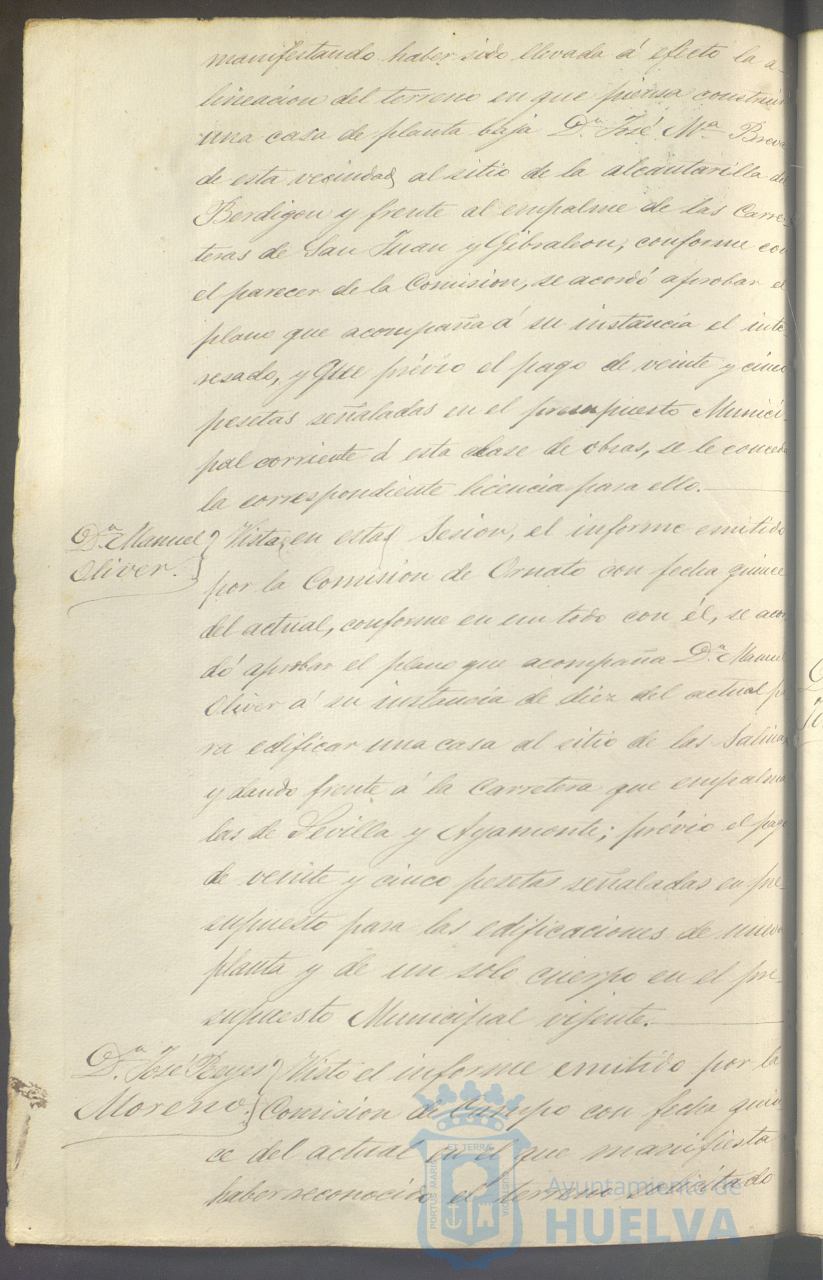 manifestando haber sido llevada á efecto la a-
lineacion del terreno en que piensa construir
una casa de planta baja D.ⁿ José M.ª Breva
de esta vecindad, al sitio de la alcantarilla del
Berdigon y frente al empalme de las Carre-
teras de San Juan y Gibraleon; conforme con
el parecer de la Comision, se acordó aprobar el
plano que acompaña á su instancia el inte-
resado, y que prévio el pago de veinte y cinco
pesetas señaladas en el presupuesto Munici-
pal corriente á esta clase de obras, se le conceda
la correspondiente licencia para ello.
D.ⁿ Manuel
Oliver.
Vista en esta Sesion, el informe emitido
por la Comision de Ornato con fecha quince
del actual, conforme en un todo con él, se acor
dó aprobar el plano que acompaña D.ⁿ Manuel
Oliver á su instancia de diez del actual pa
ra edificar una casa al sitio de las Salinas
y dando frente á la Carretera que empalma
las de Sevilla y Ayamonte; prévio el pago
de veinte y cinco pesetas señaladas en pre-
supuesto para las edificaciones de nueva
planta y de un solo cuerpo en el pre-
supuesto Municipal vijente.
D.ⁿ José Reyes
Moreno.
Visto el informe emitido por la
Comision de Campo con fecha quin
ce del actual en el que manifiesta
haber reconocido el terreno solicitado
PORTUS MARIS ET TERRÆ CUSTODIA
Ayuntamiento de
HUELVA